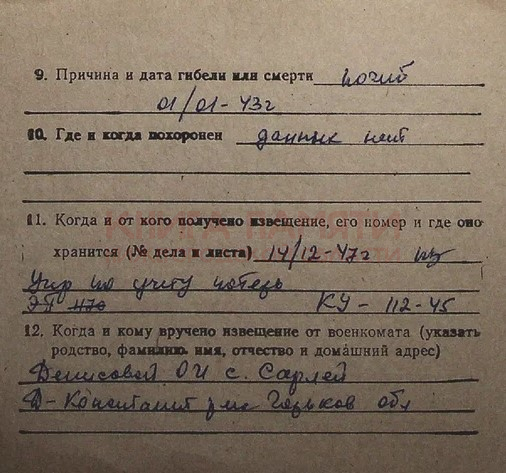 9. Причина и дата гибели или смерти погиб
01/01-43г
10. Где и когда похоронен данных нет
11. Когда и от кого получено извещение, его номер и где оно
хранится (№ дела и листа) 14/12-47г из
Упр по учету потерь
ЭП 1170 КУ - 112-45
12. Когда и кому вручено извещение от военкомата (указать
родство, фамилию, имя, отчество и домашний адрес)
Денисовой ОИ с. Сарлей
Д-Константин р-на Горьков обл